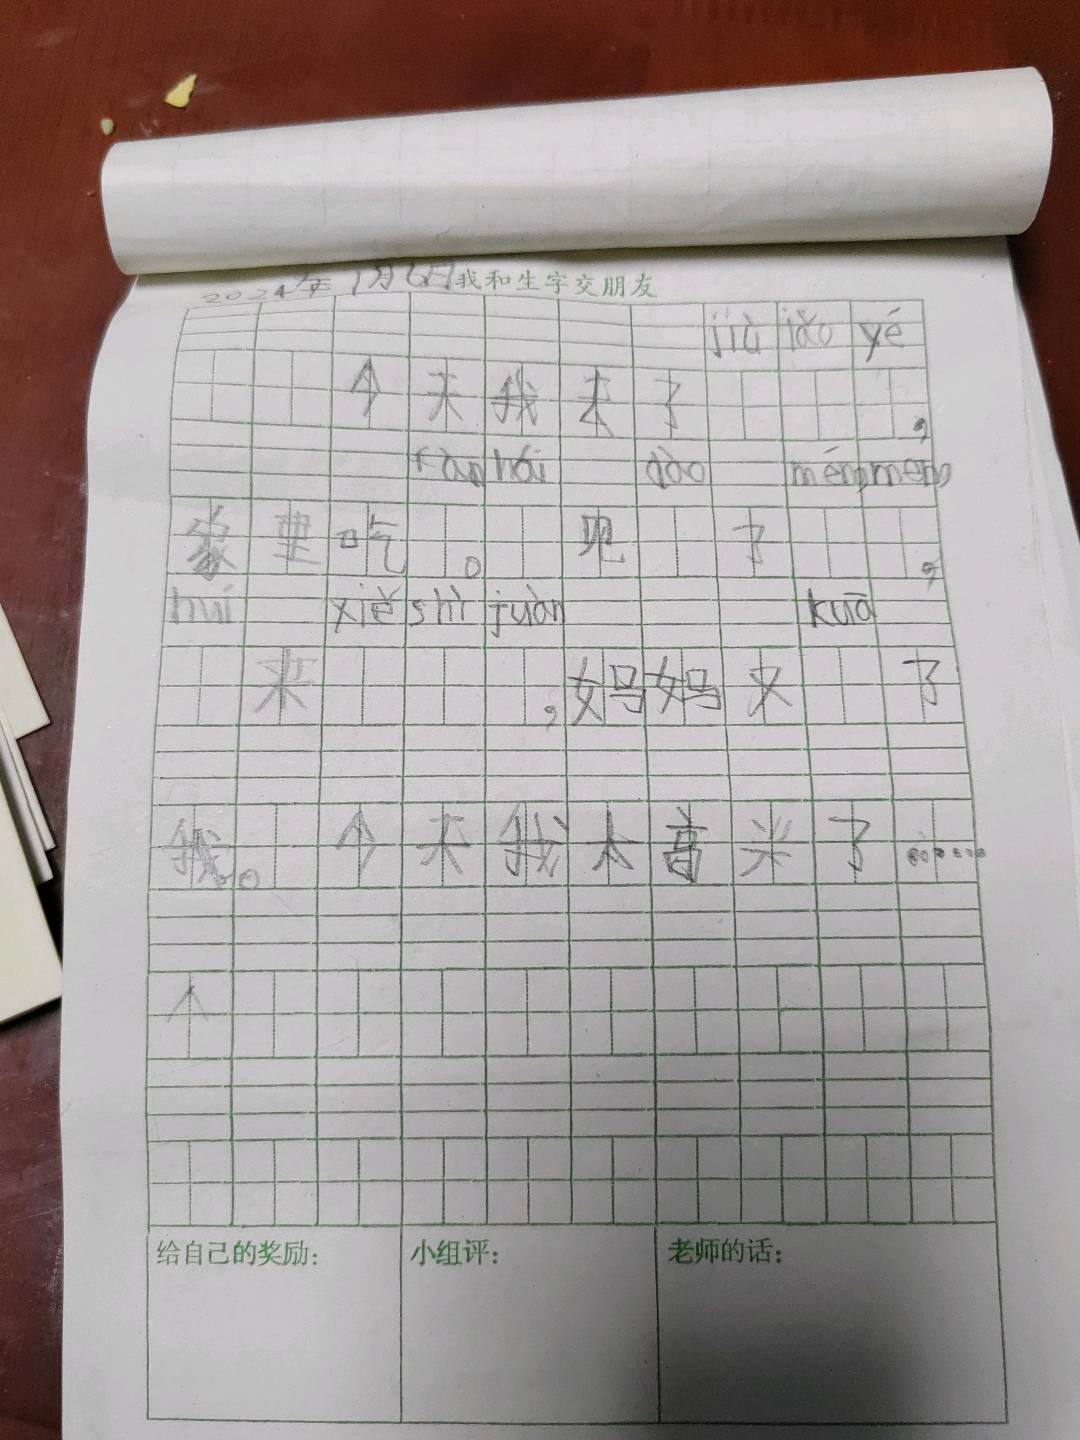 2024年1月6日我和生字交朋友
jiù jiǎo yé
今天我去了,
fàn hái dào méng meng
家里吃。见了,
huí xiě shì juàn kuā
来,妈妈又了
我。今天我太高兴了……
个
给自己的奖励: 小组评: 老师的话: